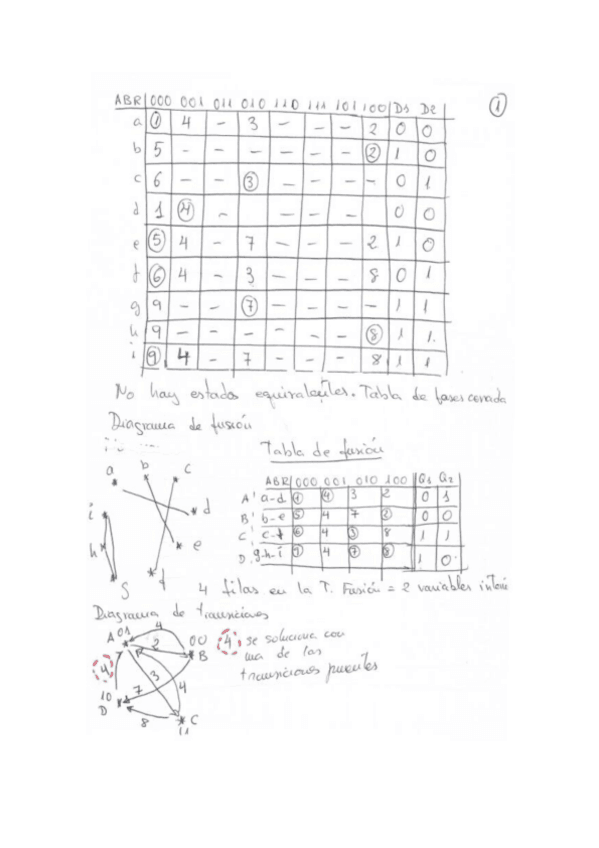 1
ABR 000 001 011 010 110 111 101 100 D1 D2
a 1 4 - 3 - - - 2 0 0
b 5 - - - - - - 2 1 0
c 6 - - 3 - - - - 0 1
d 1 4 - - - - 0 0
e 5 4 - 7 - - - 2 1 0
f 6 4 - 3 - - - 8 0 1
g 9 - - 7 - - - - 1 1
h 9 - - - - - - 8 1 1.
i 9 4 - 7 - - - 8 1 1
No hay estados equivalentes. Tabla de fases cerrada
Diagrama de fusión
Tabla de fusión
a b c d e f g h i
ABR 000 001 010 100 Q1 Q2
A' a-d 1 4 3 2 0 1
B' b-e 5 4 7 2 0 0
C' c-f 6 4 3 8 1 1
D. g-h-i 9 4 7 8 1 0.
4 filas en la T. Fusión = 2 variables
Diagrama de transiciones
A 01 4 2 00 B
4 3 7 4
10 D 8 C 11
4 se soluciona con
una de las
transiciones puentes